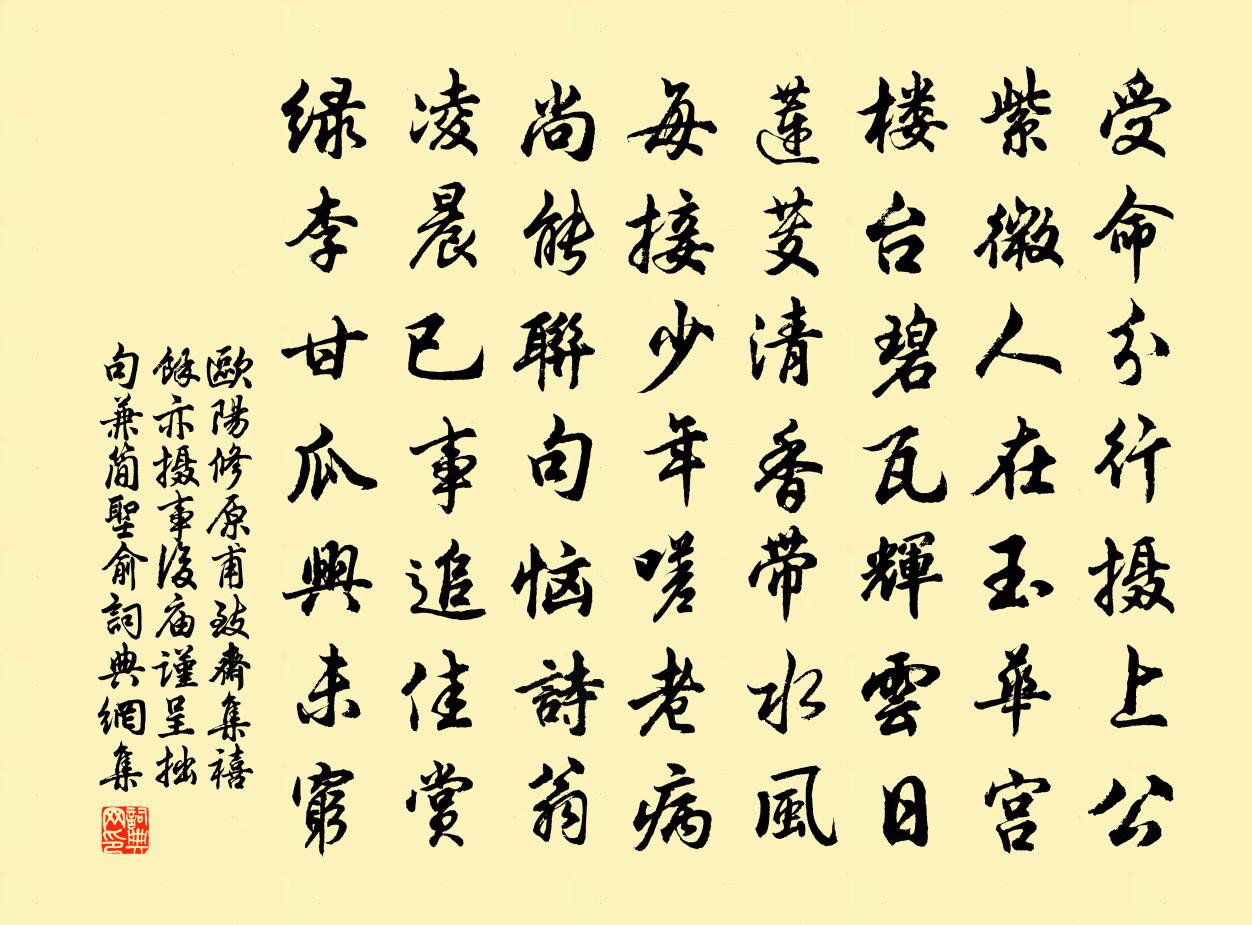 受命分行摄上公
紫微人在玉華宫
楼台碧瓦輝雲日
蓮芰清香带水風
每接少年嗟老病
尚能聯句恼詩翁
凌晨已事追佳赏
绿李甘瓜興未窮
歐陽修原甫致齋集禧
餘亦摄事後庙謹呈拙
句兼简聖俞詞典網集
詞典
网印